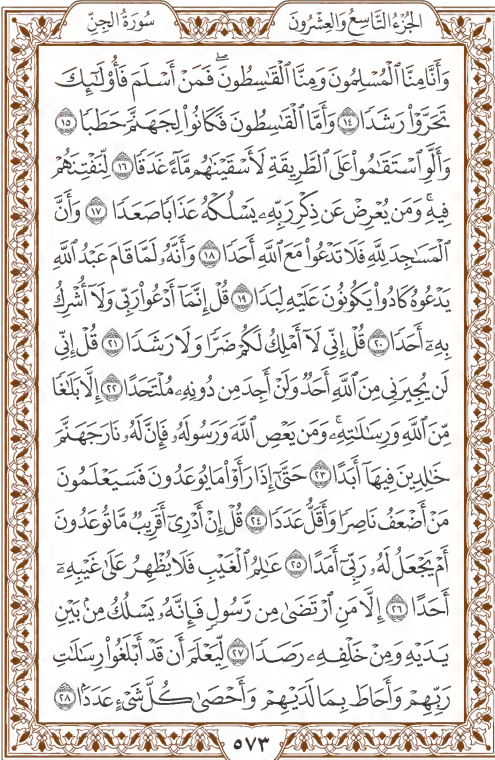 الجُزْءُ التَّاسِعُ وَالعِشْرُونَ
سُورَةُ الجِنّ
وَأَنَّا مِنَّا ٱلْمُسْلِمُونَ وَمِنَّا ٱلْقَٰسِطُونَۖ فَمَنْ أَسْلَمَ فَأُو۟لَٰٓئِكَ
تَحَرَّوْا۟ رَشَدًا ١٤ وَأَمَّا ٱلْقَٰسِطُونَ فَكَانُوا۟ لِجَهَنَّمَ حَطَبًا ١٥
وَأَلَّوِ ٱسْتَقَٰمُوا۟ عَلَى ٱلطَّرِيقَةِ لَأَسْقَيْنَٰهُم مَّآءً غَدَقًا ١٦ لِّنَفْتِنَهُمْ
فِيهِۚ وَمَن يُعْرِضْ عَن ذِكْرِ رَبِّهِۦ يَسْلُكْهُ عَذَابًا صَعَدًا ١٧ وَأَنَّ
ٱلْمَسَٰجِدَ لِلَّهِ فَلَا تَدْعُوا۟ مَعَ ٱللَّهِ أَحَدًا ١٨ وَأَنَّهُۥ لَمَّا قَامَ عَبْدُ ٱللَّهِ
يَدْعُوهُ كَادُوا۟ يَكُونُونَ عَلَيْهِ لِبَدًا ١٩ قُلْ إِنَّمَآ أَدْعُوا۟ رَبِّى وَلَآ أُشْرِكُ
بِهِۦٓ أَحَدًا ٢٠ قُلْ إِنِّى لَآ أَمْلِكُ لَكُمْ ضَرًّا وَلَا رَشَدًا ٢١ قُلْ إِنِّى
لَن يُجِيرَنِى مِنَ ٱللَّهِ أَحَدٌ وَلَنْ أَجِدَ مِن دُونِهِۦ مُلْتَحَدًا ٢٢ إِلَّا بَلَٰغًا
مِّنَ ٱللَّهِ وَرِسَٰلَٰتِهِۦۚ وَمَن يَعْصِ ٱللَّهَ وَرَسُولَهُۥ فَإِنَّ لَهُۥ نَارَ جَهَنَّمَ
خَٰلِدِينَ فِيهَآ أَبَدًا ٢٣ حَتَّىٰٓ إِذَا رَأَوْا۟ مَا يُوعَدُونَ فَسَيَعْلَمُونَ
مَنْ أَضْعَفُ نَاصِرًا وَأَقَلُّ عَدَدًا ٢٤ قُلْ إِنْ أَدْرِىٓ أَقَرِيبٌ مَّا تُوعَدُونَ
أَمْ يَجْعَلُ لَهُۥ رَبِّىٓ أَمَدًا ٢٥ عَٰلِمُ ٱلْغَيْبِ فَلَا يُظْهِرُ عَلَىٰ غَيْبِهِۦٓ
أَحَدًا ٢٦ إِلَّا مَنِ ٱرْتَضَىٰ مِن رَّسُولٍ فَإِنَّهُۥ يَسْلُكُ مِنۢ بَيْنِ
يَدَيْهِ وَمِنْ خَلْفِهِۦ رَصَدًا ٢٧ لِّيَعْلَمَ أَن قَدْ أَبْلَغُوا۟ رِسَٰلَٰتِ
رَبِّهِمْ وَأَحَاطَ بِمَا لَدَيْهِمْ وَأَحْصَىٰ كُلَّ شَىْءٍ عَدَدًۢا ٢٨
٥٧٣